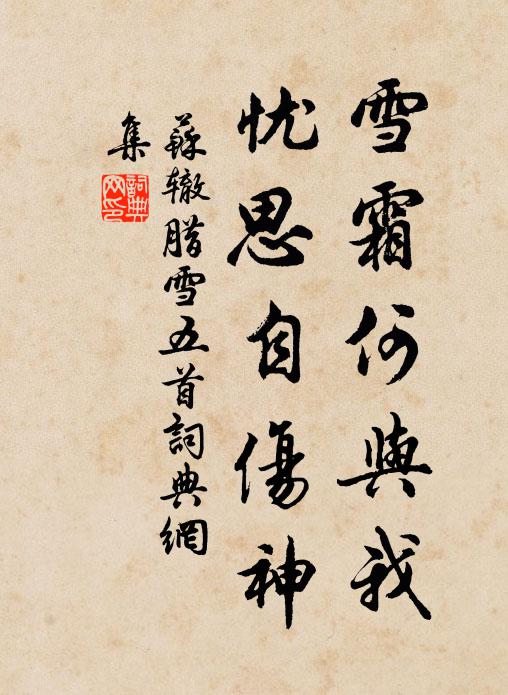 雪霜何與我
忧思自傷神
蘇辙腊雪五首詞典網
集
詞典
网印